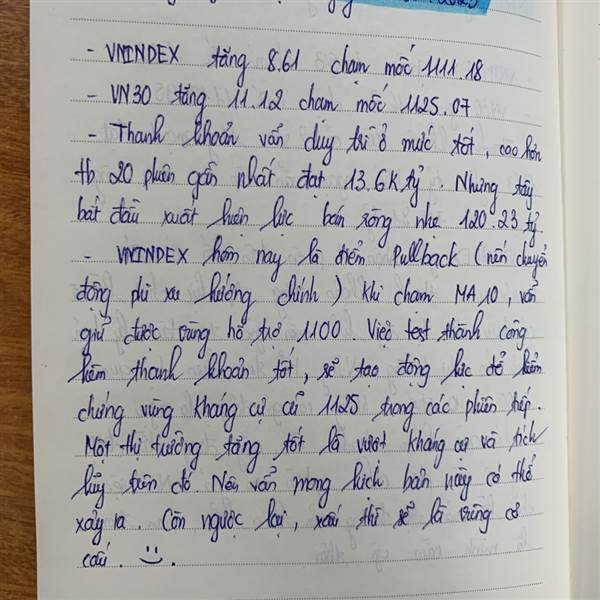 2023
- VNINDEX tăng 8.61 chạm mốc 1111.18
- VN30 tăng 11.12 chạm mốc 1125.07
- Thanh khoản vẫn duy trì ở mức tốt, cao hơn
tb 20 phiên gần nhất đạt 13.6K tỷ. Nhưng tây
bắt đầu xuất hiện lực bán ròng nhẹ 120.23 tỷ.
- VNINDEX hôm nay là điểm Pullback (nến chuyển
động phi xu hướng chính) khi chạm MA10, vẫn
giữ được vùng hỗ trợ 1100. Việc test thành công
kèm thanh khoản tốt, sẽ tạo động lực để kiểm
chứng vùng kháng cự cũ 1125 trong các phiên tiếp.
Một thị trường tăng tốt là vượt kháng cự và tích
lũy trên đó. Nên vẫn mong kịch bản này có thể
xảy ra. Còn ngược lại, xấu thì sẽ là vùng cơ
cấu.